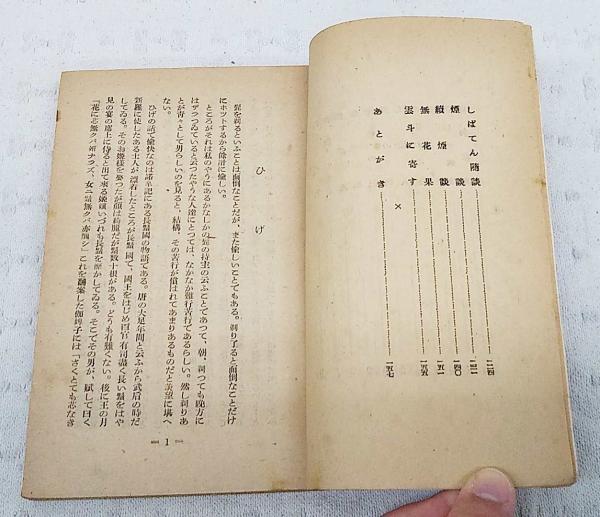 しばてん隨談……………二四
煙談……………三二
續煙談……………一四〇
無花果……………一五一
雲斗に寄す……………一五五
×
あとがき……………一五七
ひげ
髭を剃るといふことは面倒なことだが、また愉しいことでもある。剃り了ると面倒なことだけ
にホツトするから餘計に愉しい。
ところがそれは私のやうにあるかなしかの髭の持主の云ふことであつて、朝、剃つても晩方に
はザラついてゐると云つたやうな人達にとつては、なかなか難行苦行であるらしい。然し剃りあ
とが靑々として男らしいのを見ると、結構、その苦行が償はれてあまりあるものだと羨望に堪へ
ない。
ひげの話で愉快なのは諾皐記にある長鬚國の物語である。唐の大足年間と云ふから武后の時だ
新羅に使したある士人が漂着したところが長鬚國で、國王をはじめ百官有司盡く長い鬚をはや
してゐる。そのお姬樣を娶つたが顏は綺麗だが鬚數十根がある。どうも有難くない。後に王の月
見の宴の席上に侍ると出て來る嬪姬いづれも長鬚を靡かしてゐる。そこでその男が、賦して曰く
「花ニ蕊無クバ姸ナラズ、女ニ鬚無クバ亦醜シ」これを飜案した伽婢子には「さくとても蕊なき
— 1 —